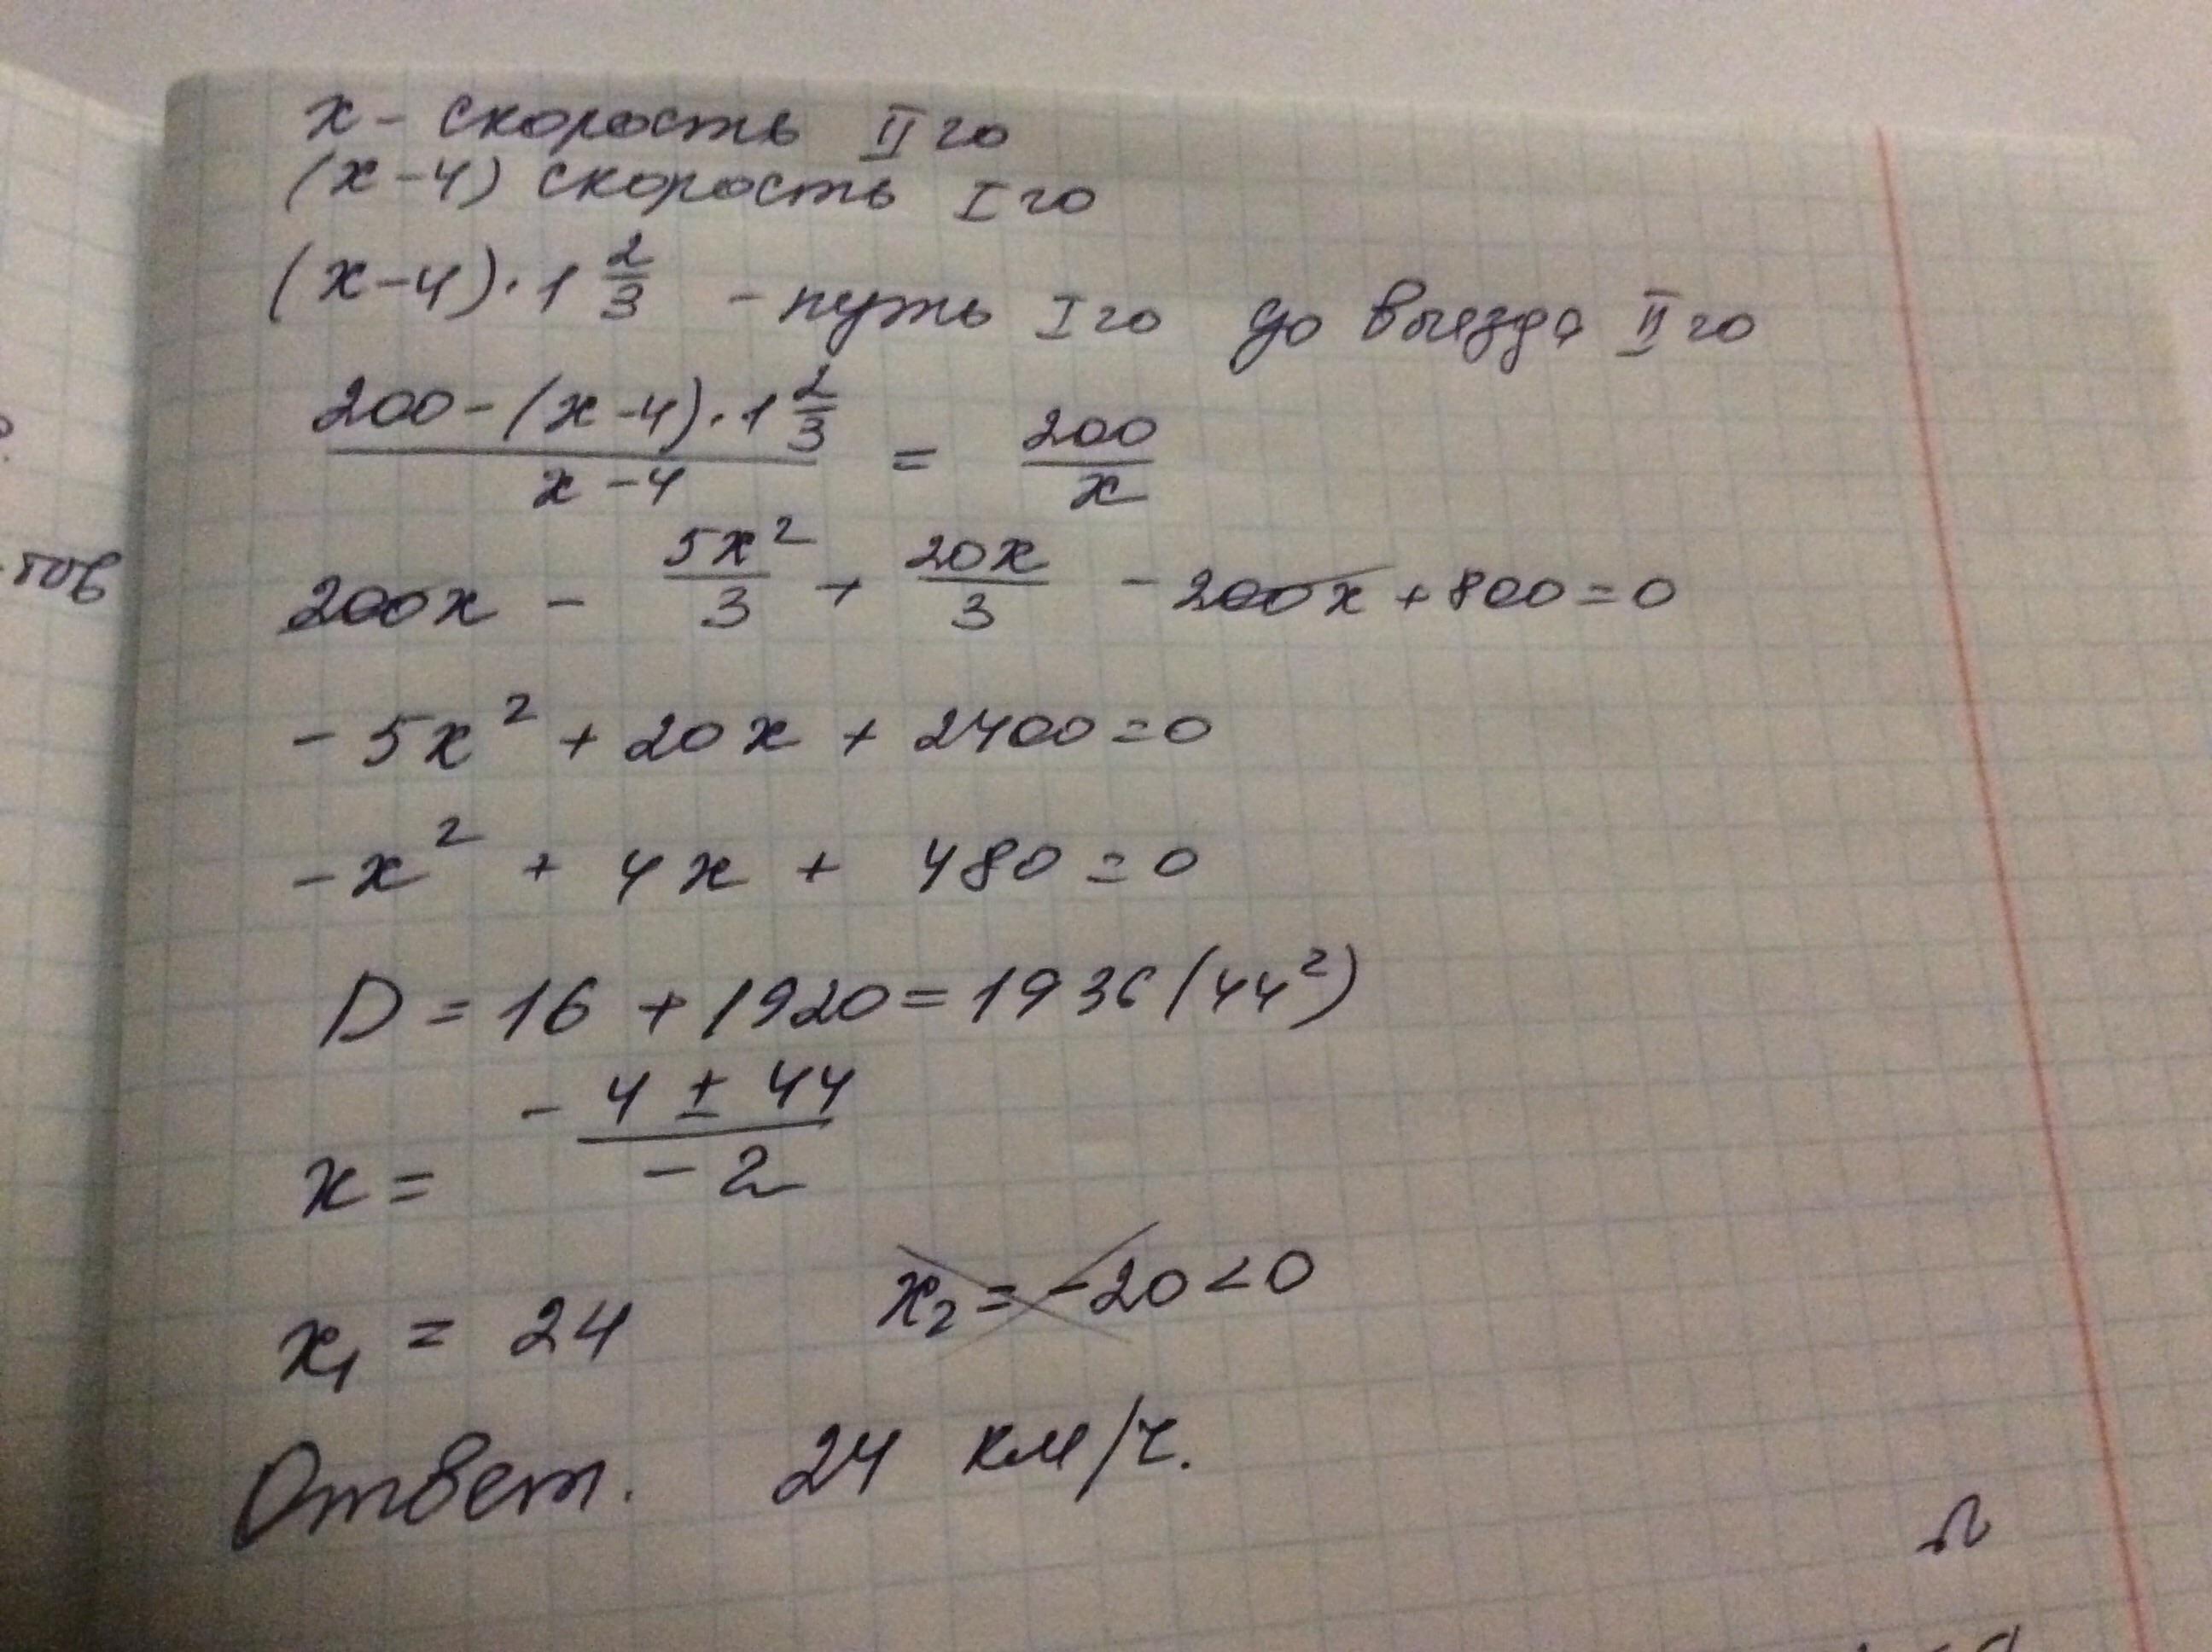 x - скорость IIго
(x-4) скорость Iго
(x-4)·1 2/3 - путь Iго до выезда IIго
(200-(x-4)·1 2/3)/(x-4) = 200/x
200x - 5x²/3 + 20x/3 - 200x + 800 = 0
-5x² + 20x + 2400 = 0
-x² + 4x + 480 = 0
D = 16 + 1920 = 1936 (44²)
x = (-4 ± 44)/(-2)
x₁ = 24 x₂ = -20 < 0
Ответ. 24 км/ч.